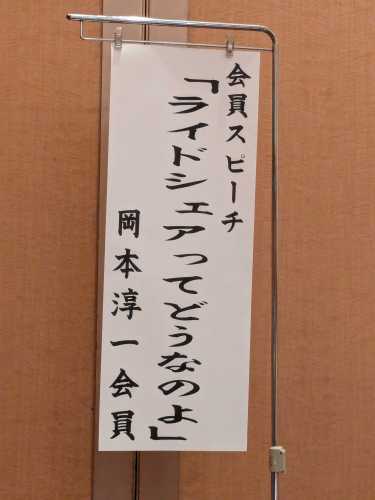 会員スピーチ
「ライドシェアってどうなのよ」
岡本淳一会員